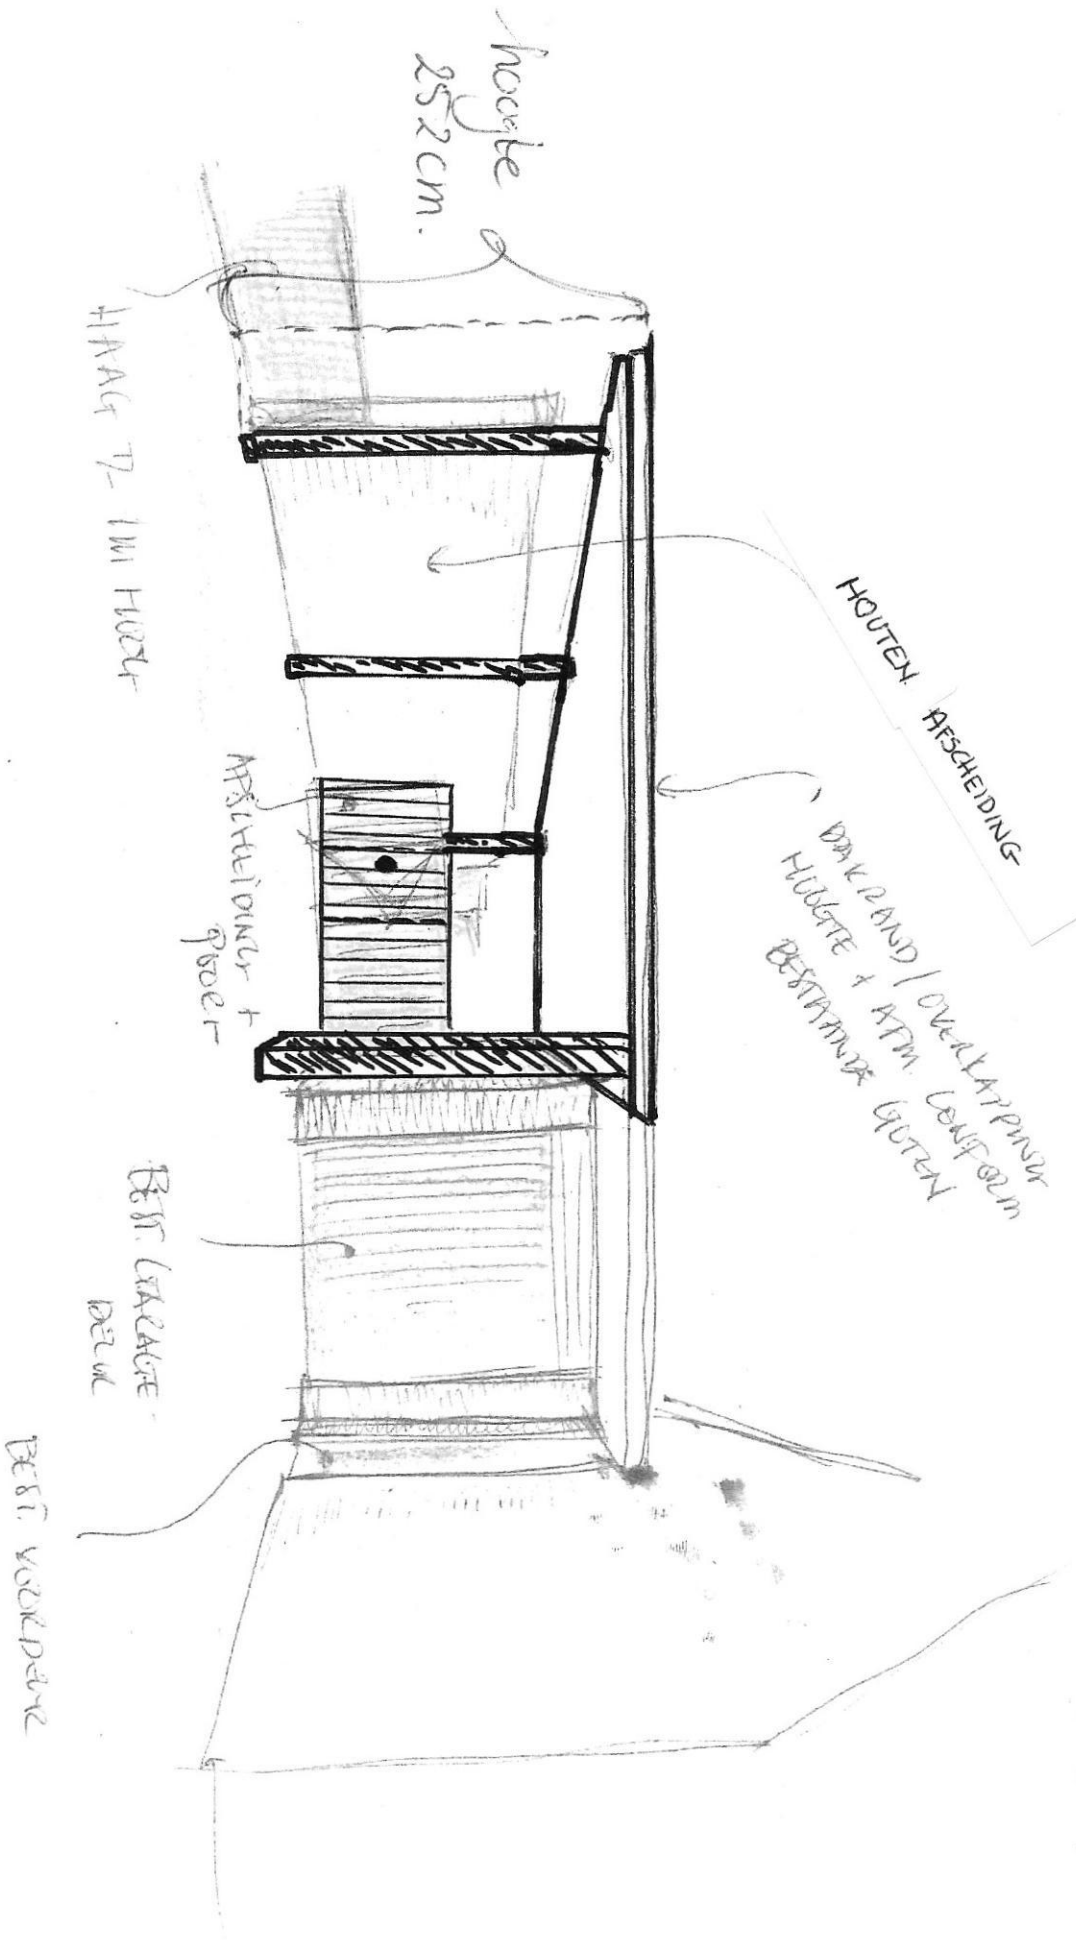 hoogte
252cm.
HOUTEN AFSCHEIDING
DAKRAND/OVERKAPPING
HOOGTE + AFM. CONFORM
BESTAANDE GOTEN
HAAG 1M HOOG
AFSCHEIDING +
POORT
BEST. GARAGE
DEUR
BEST. VOORDEUR